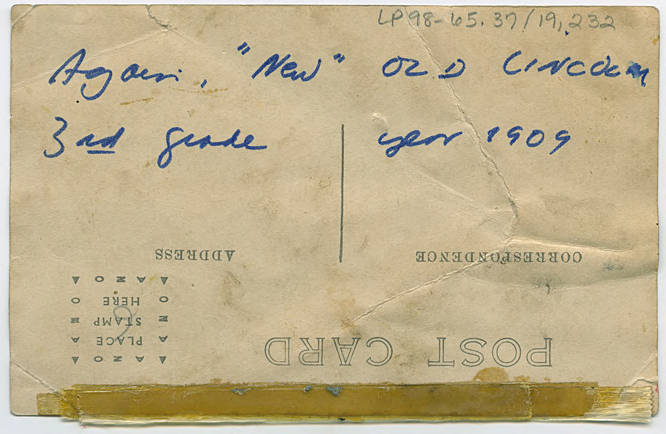 LP98-65.37/19,232
Again, "New" OLD LINCOLN
3rd grade year 1909
POST CARD
CORRESPONDENCE
ADDRESS
AZO
PLACE
STAMP
HERE
AZO